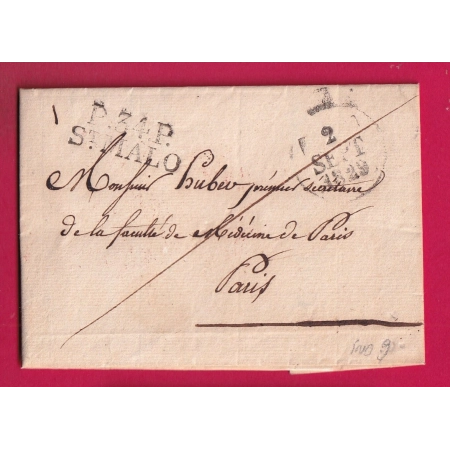 P. 34. P.
ST. MALO
2
SEPT
1829
Monsieur Huber premier secrétaire
de la faculté de Médecine de Paris
Paris